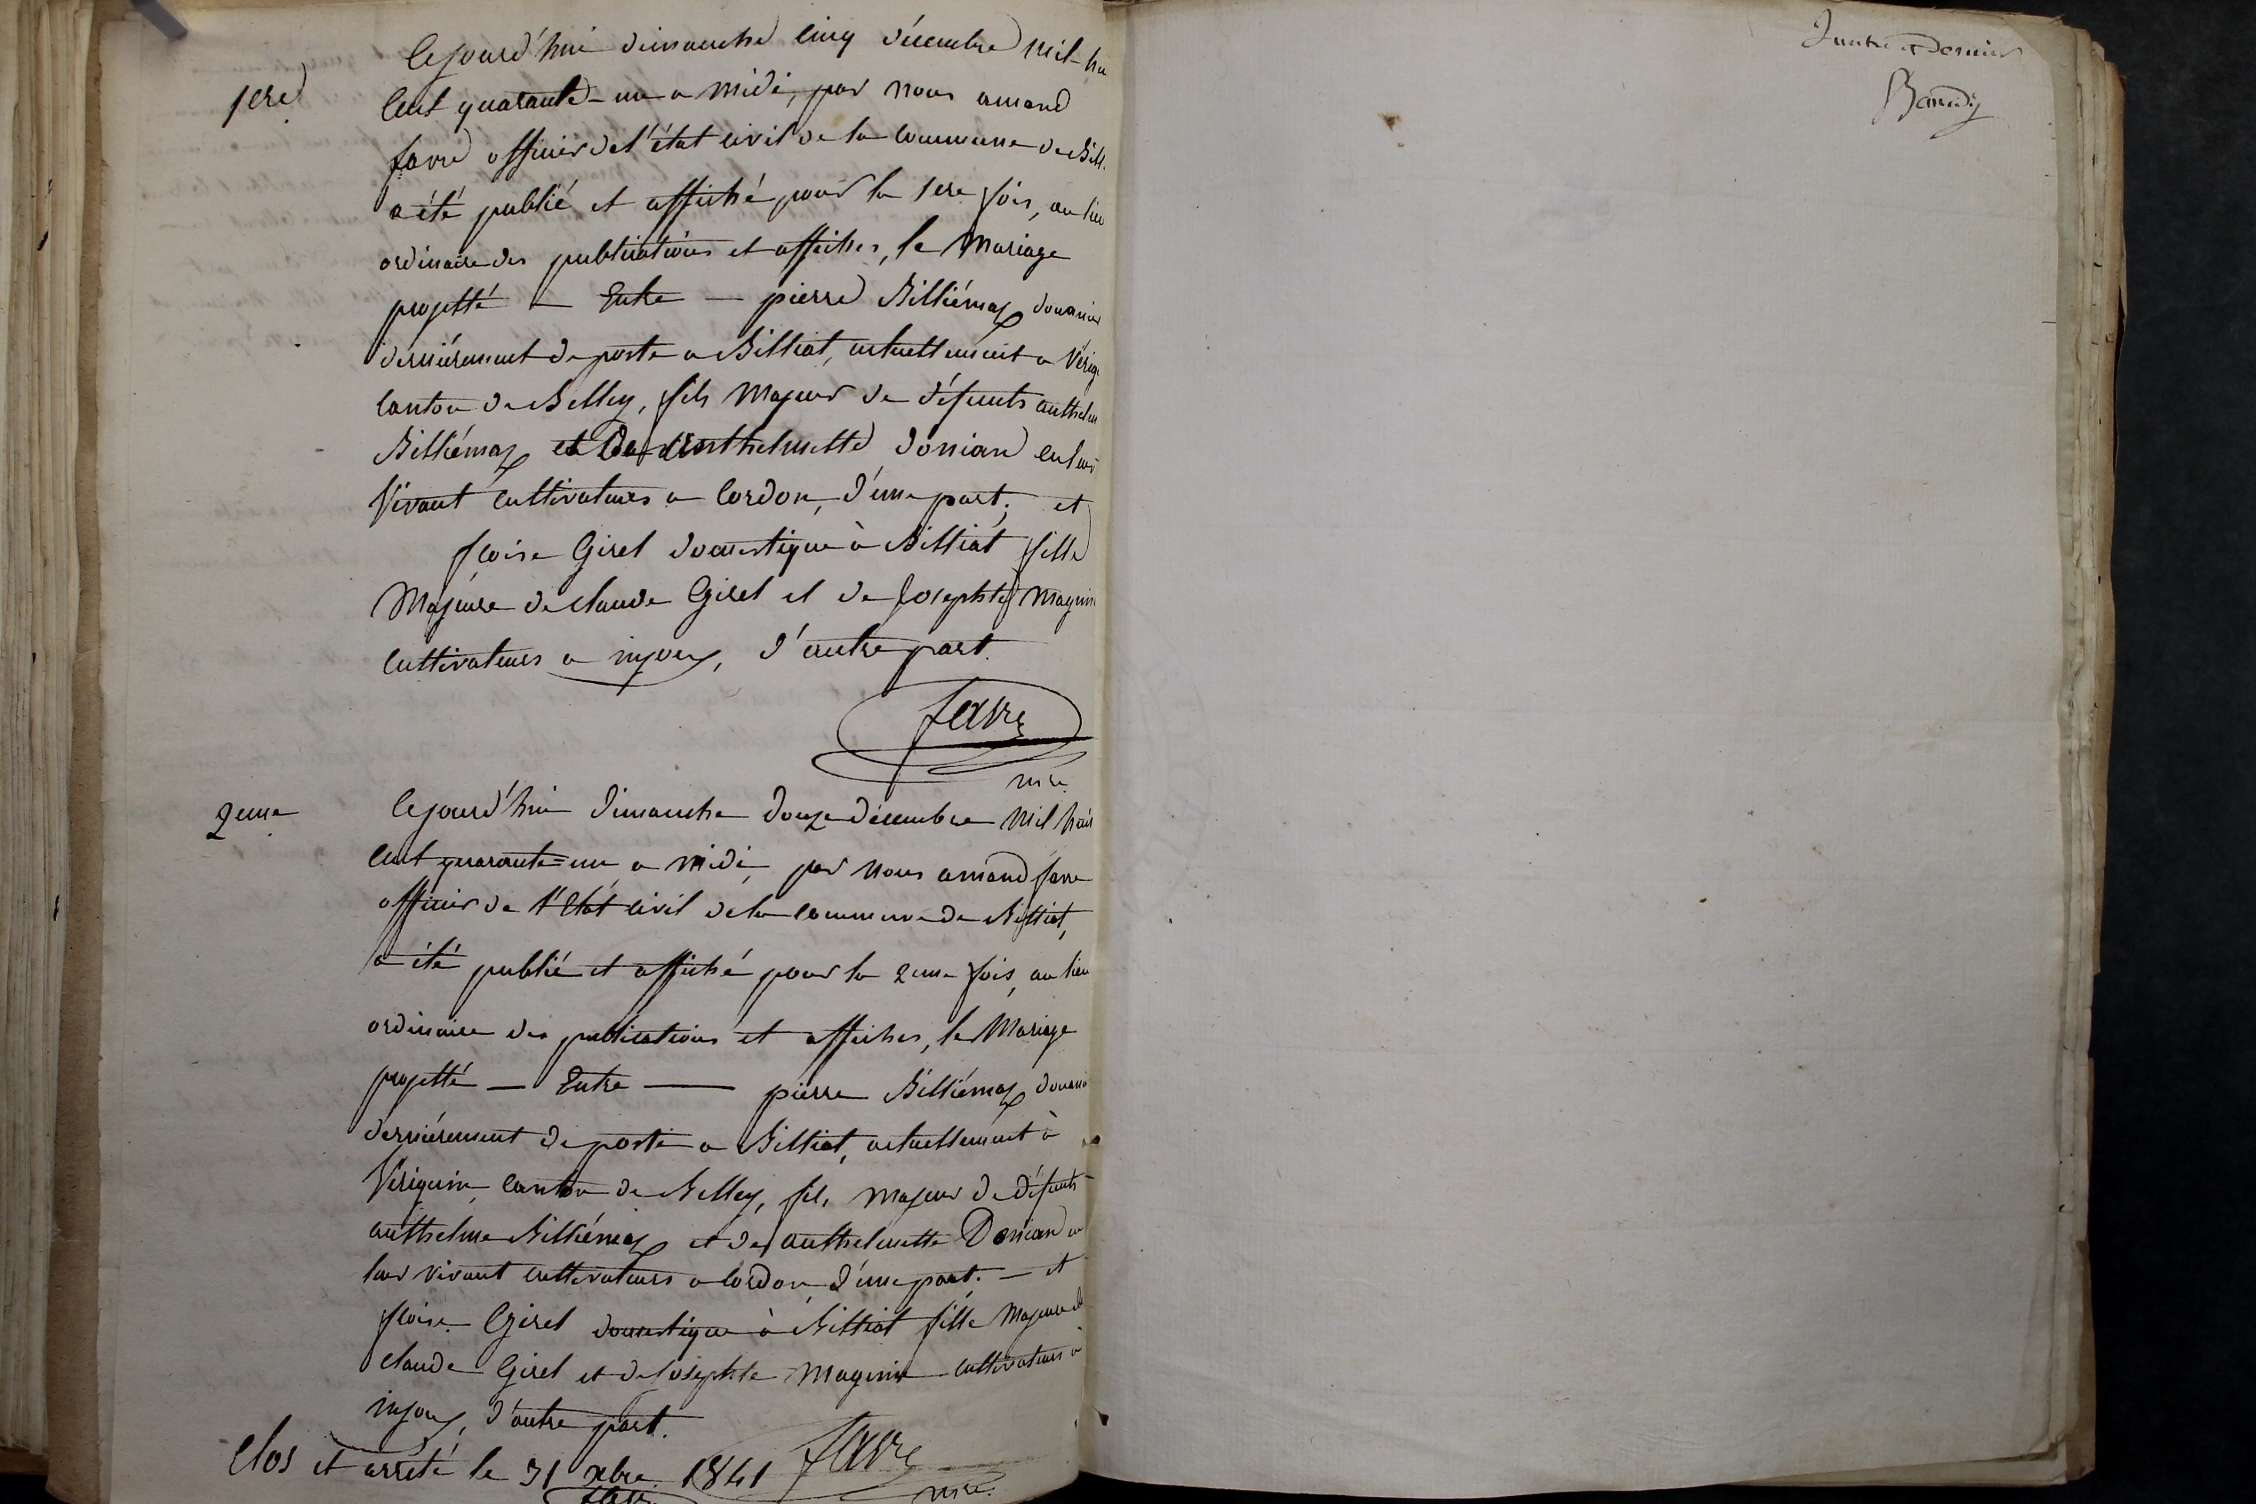 Cejourd'hui dimanche cinq décembre mil-hu
1ere
cent quarante-un a midi, par nous amand
favre officier de l'état civil de la commune de Bill
a été publié et affiché pour la 1ere fois, au lieu
ordinaire des publications et affiches, le Mariage
projetté — Entre — pierre Billiémaz douanier
dernièrement de poste a Billiat, actuellement a Virig
canton de Belley, fils Majeur de défunts anthelm
Billiémaz et de anthelmette donian en leur
Vivant cultivateurs a Cordon, d'une part; et
floise Girel domestique à Billiat fille
Majeure de claude Girel et de Josephte Magnin
cultivateurs a injoux, d'autre part.
favre
mre
2eme
Cejourd'hui dimanche douze décembre Mil huit
cent quarante-un, a midi, par nous amand favre
officier de l'Etat civil de la commune de Billiat,
a été publié et affiché pour la 2eme fois, au lieu
ordinaire des publications et affiches, le Mariage
projetté — Entre — pierre Billiémaz douanie
dernièrement de poste a Billiat, actuellement à
Virignin canton de Belley, fils majeur de défunts
anthelme Billiémaz et de anthelmette Donian en
leur vivant cultivateurs a Cordon, d'une part. — et
floise Girel domestique à Billiat fille Majeure de
claude Girel et de Josephte Magnin cultivateurs a
injoux, d'autre part.
Clos et arrêté le 31 xbre 1841 favre
mre.
favre
et dernier